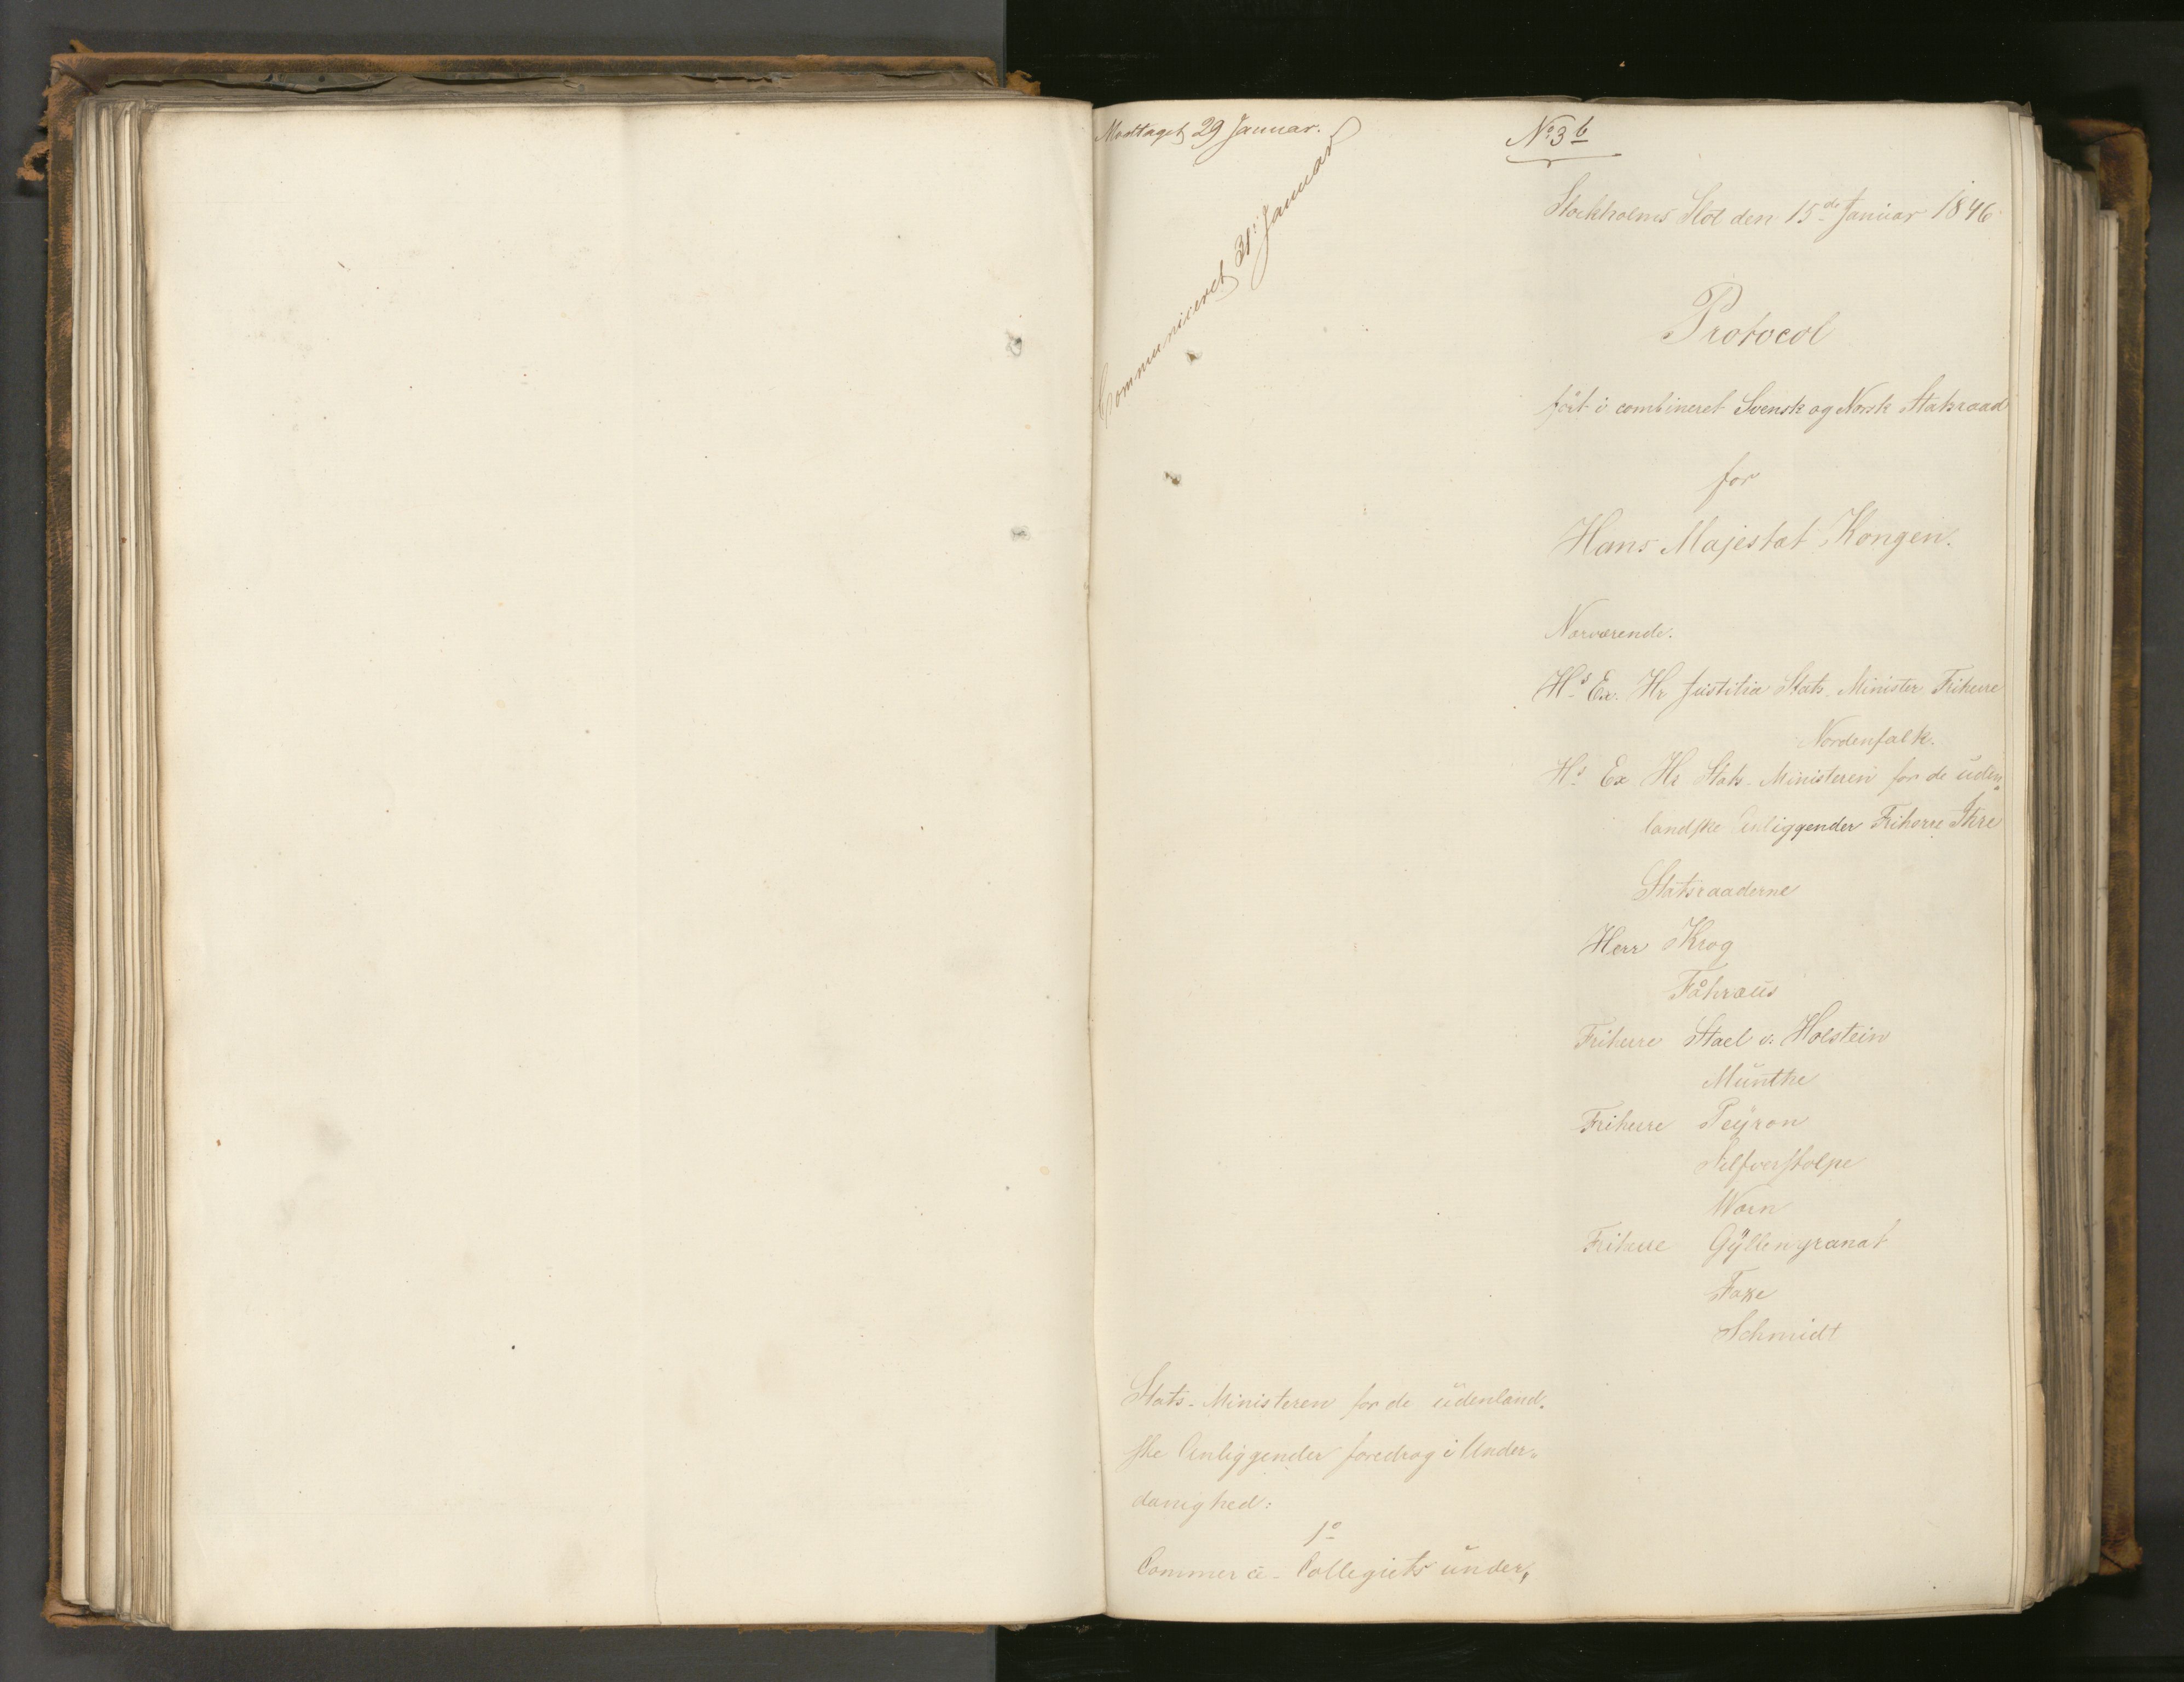 Modtaget 29 Januar.
Communiceret 31: Januar
No 3 b
Stockholms Slot den 15de Januar 1846
Protocol
fört i combineret Svensk og Norsk Statsraad
for
Hans Majestæt Kongen.
Nærværende.
Hs Ex. Hr Justitiæ Stats Minister Friherre
Nordenfalk.
Hs Ex Hr Stats-Ministeren for de uden„
landske Anliggender Friherre Ihre
Statsraaderne
Herr Krog
Fåhræus
Friherre Stael v. Holstein
Munthe
Friherre Peyron
Silfverstolpe
Wærn
Friherre Gyllengranat
Faxe
Schmidt
Stats-Ministeren for de udenland„
ske Anliggender foredrog i Under„
danighed:
1o
Commerce-Collegiets under„